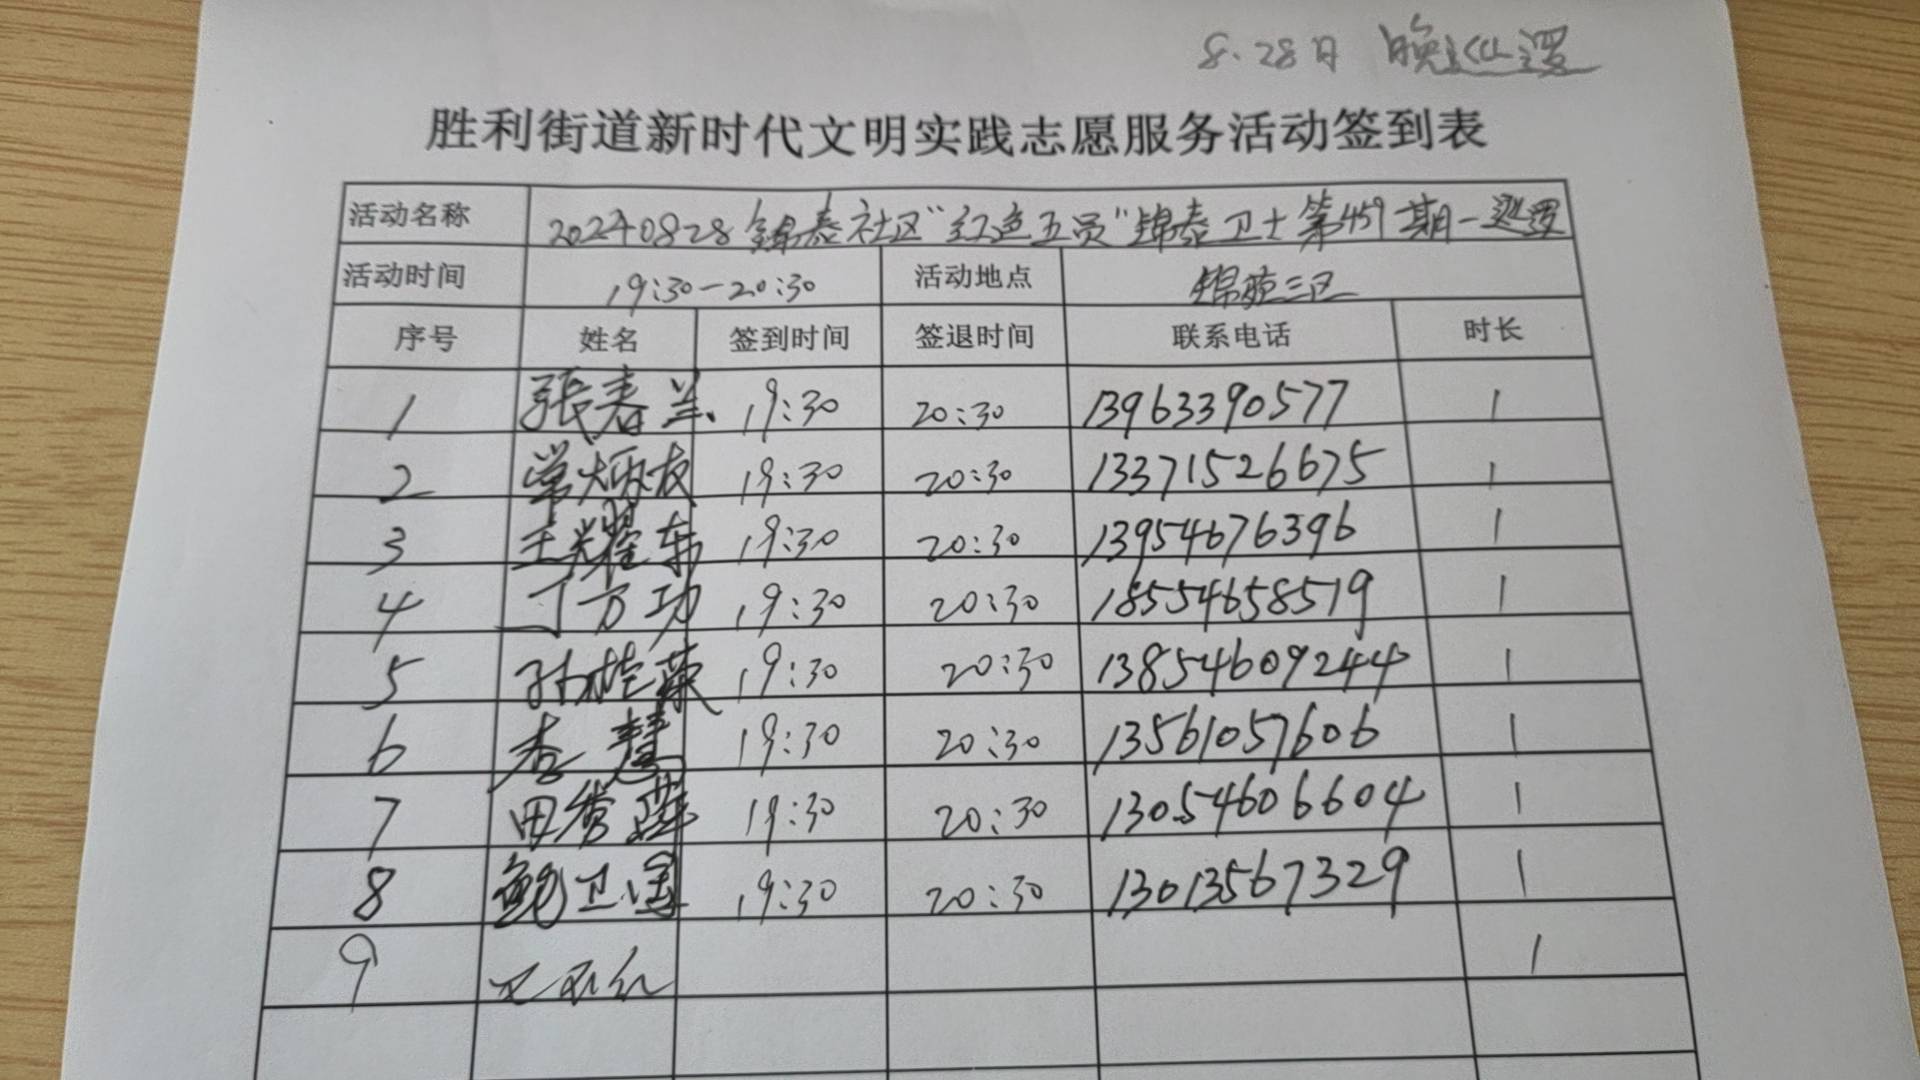 8.28日 晚巡逻
胜利街道新时代文明实践志愿服务活动签到表
活动名称 20240828锦泰社区“红色五员”锦泰卫士第459期一巡逻
活动时间 19:30-20:30 活动地点 锦苑三区
序号 姓名 签到时间 签退时间 联系电话 时长
1 張春兰 19:30 20:30 13963390577 1
2 常炳友 19:30 20:30 13371526675 1
3 王耀东 19:30 20:30 13954676396 1
4 丁方功 19:30 20:30 18554658519 1
5 孙桂荣 19:30 20:30 13854609244 1
6 李慧 19:30 20:30 13561057606 1
7 田秀萍 19:30 20:30 13054606604 1
8 鲍卫国 19:30 20:30 13013567329 1
9 1